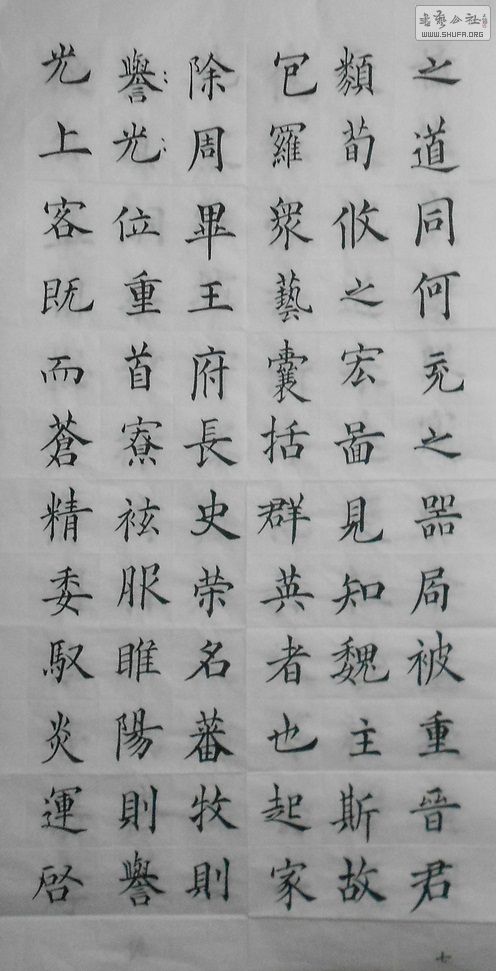 之道同何充之器局被重晉君
類荀攸之宏啚見知魏主斯故
包羅衆藝囊括群英者也起家
除周畢王府長史荣名蕃牧則
譽：光：位重首寮袨服睢陽則譽
光上客既而蒼精委馭炎運啓
七
书艺公社
WWW.SHUFA.ORG